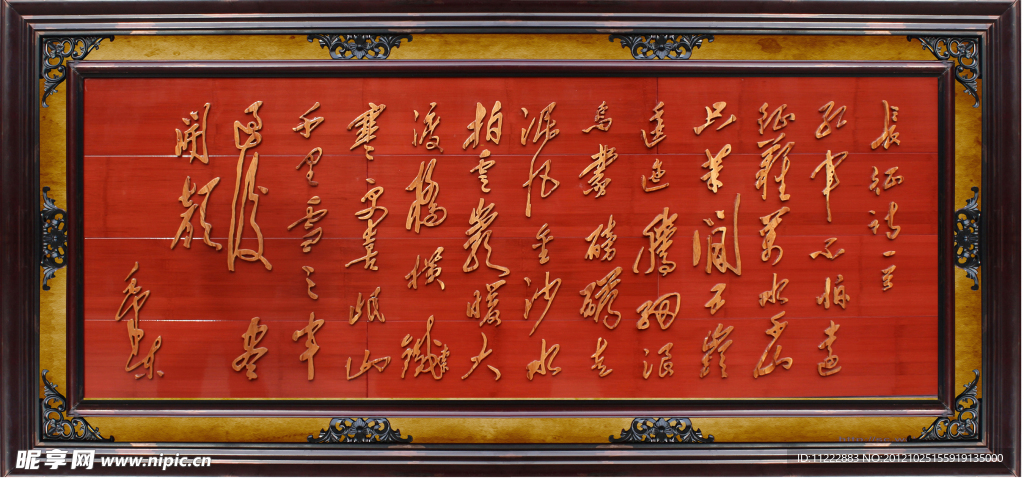 長征詩一首
紅軍不怕遠
征難萬水千山
只等閒五嶺
逶迤騰細浪
烏蒙磅礴走
泥丸金沙水
拍雲崖暖大
渡橋橫鐵索
寒更喜岷山
千里雪三軍
過後盡
開顏
毛澤東
昵享网 www.nipic.cn
ID:11222883 NO:20121025155919135000